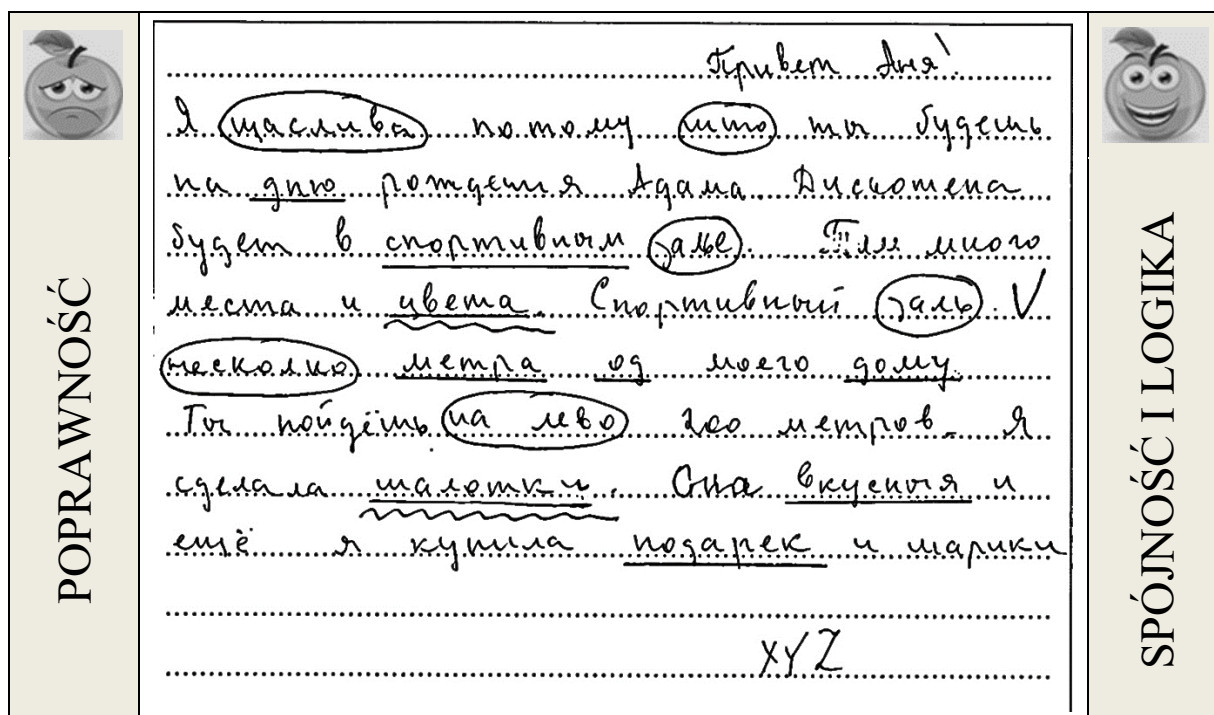 POPRAWNOŚĆ
Привет Аня!
Я щаслива потому што ты будешь
на дню рождения Адама. Дискотека
будет в спортивном залье. Там много
места и цвета. Спортивный заль. V
несколко метра од моего дому.
Ты пойдёшь на лево 200 метров. Я
сделала шалотки. Она вкусныя и
ещё я купила подарек и шарики
XYZ
SPÓJNOŚĆ I LOGIKA